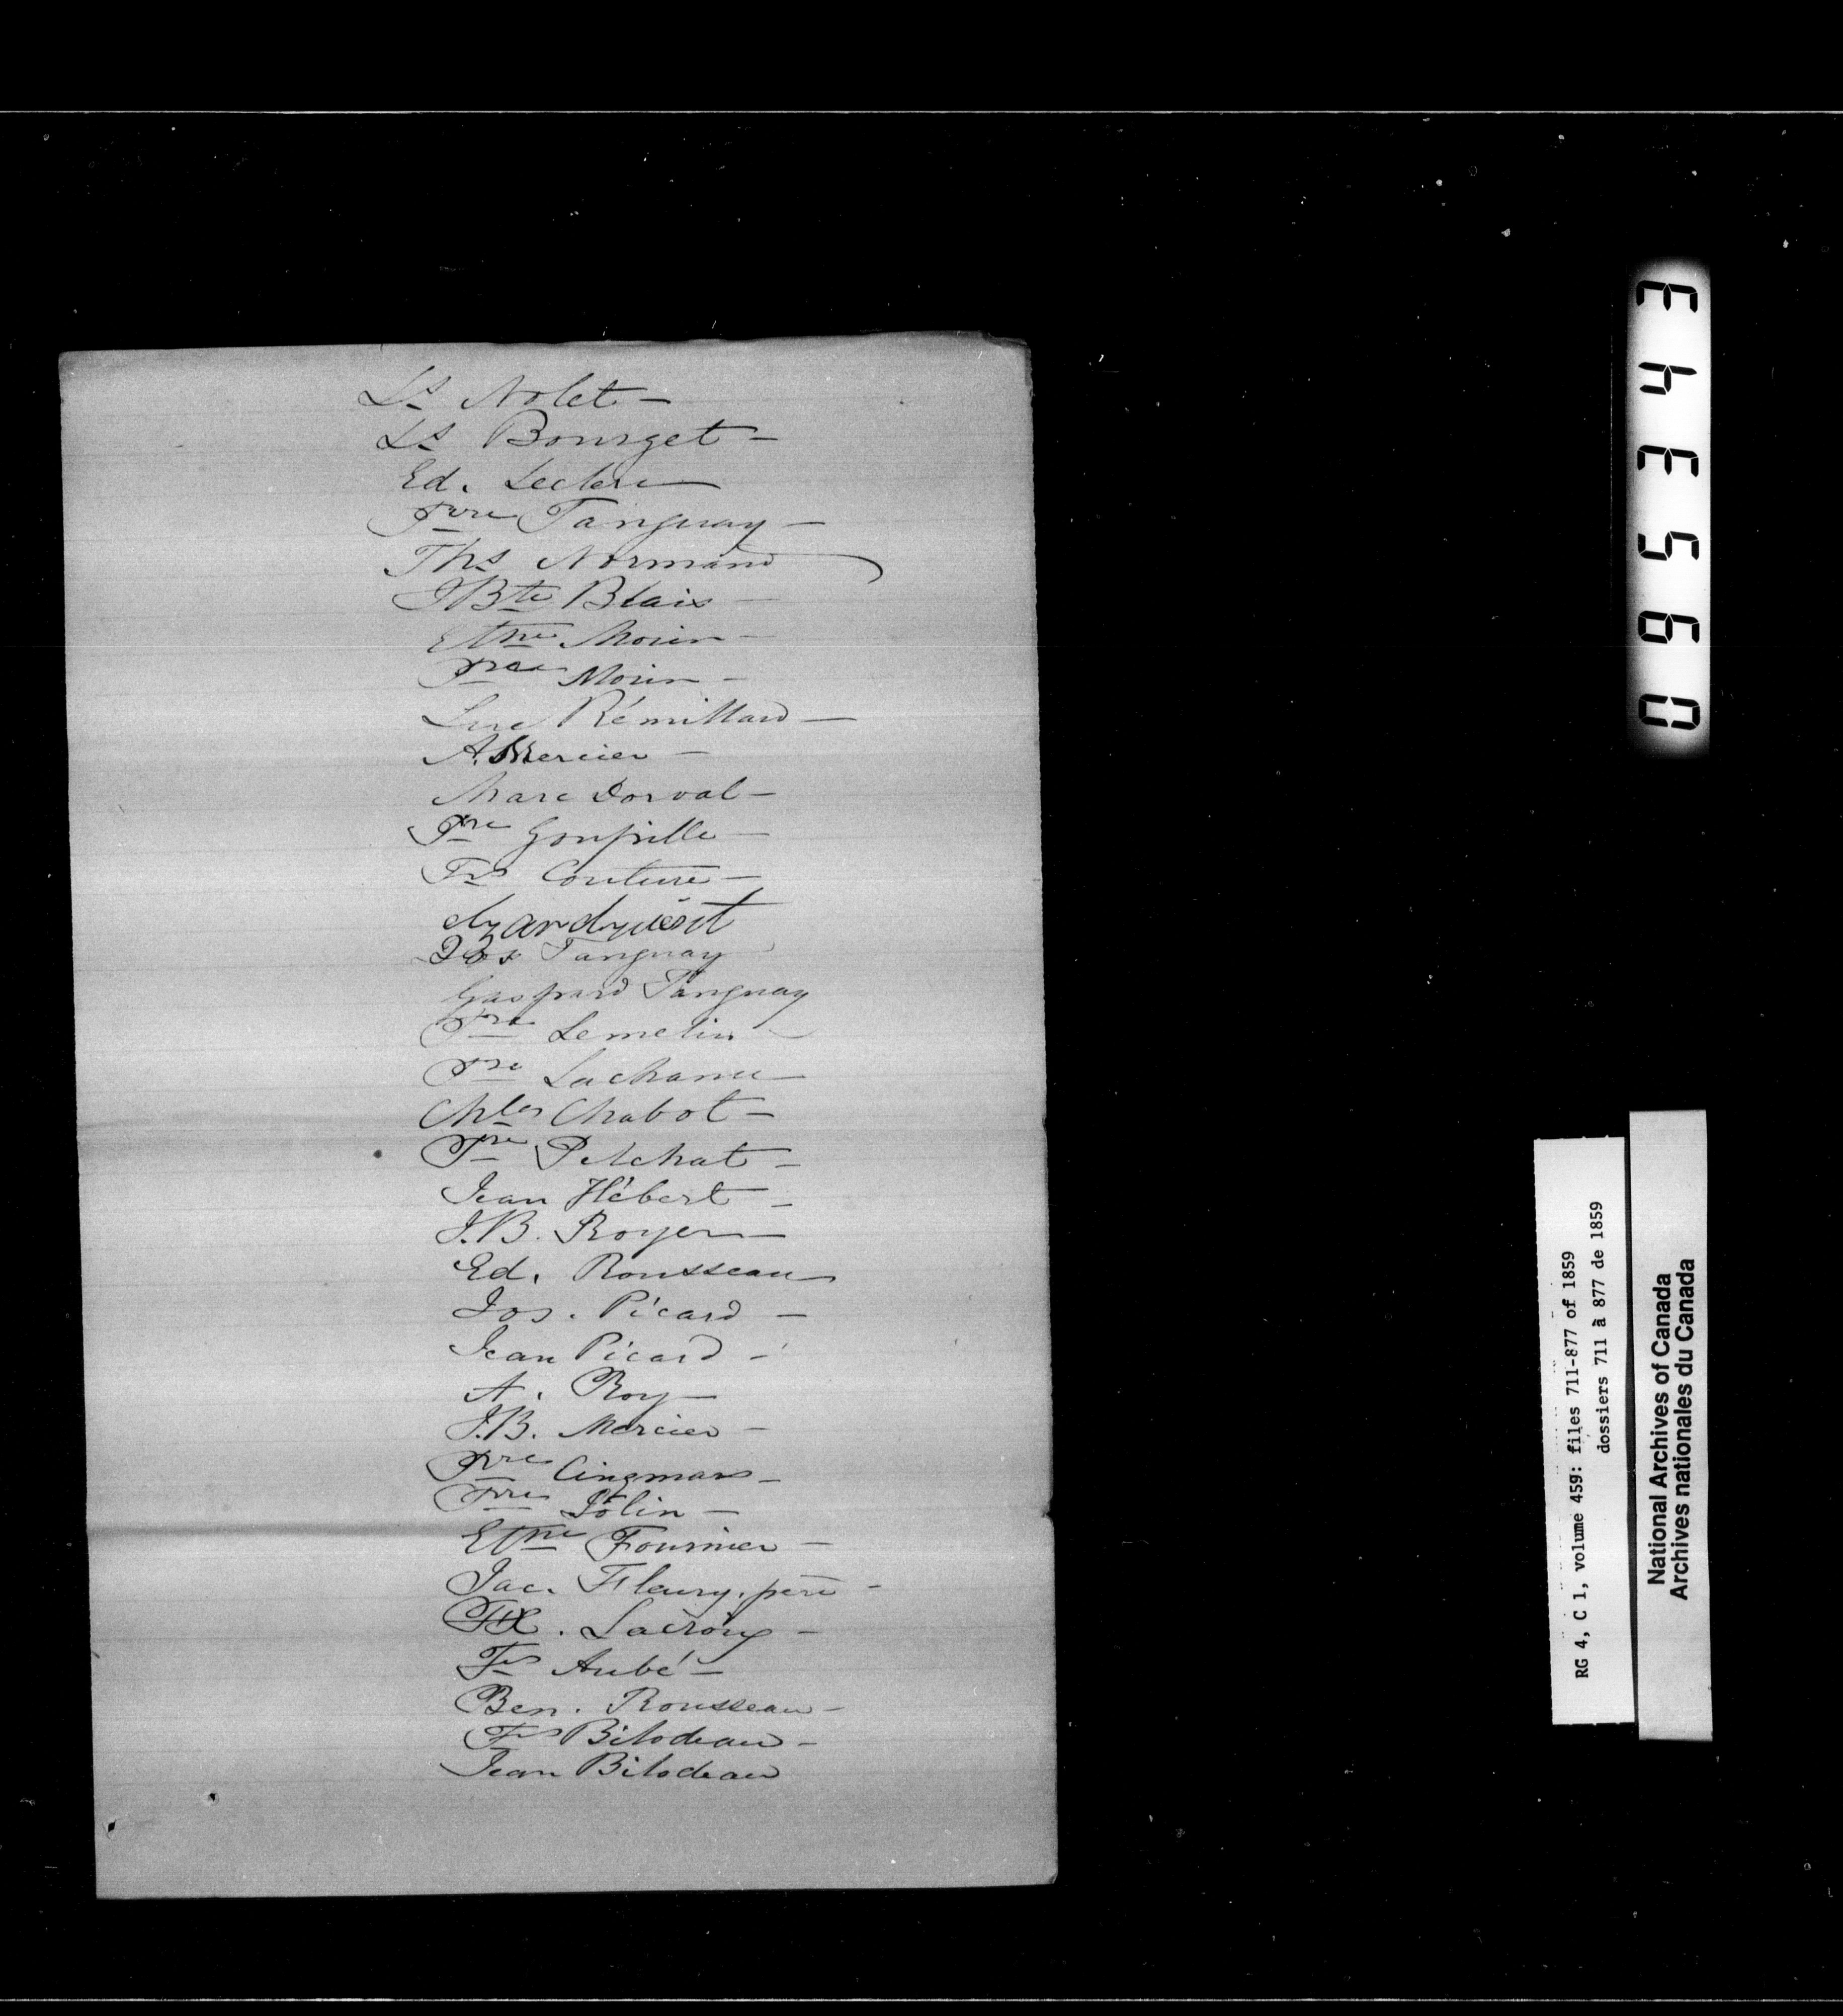 Ls Nolet —
Ls Bourget —
Ed. Leclerc
Pre Tanguay —
Ths Normand
JBte Blais —
Etne Morin —
Pre Morin —
Luc Rémillard —
A. Mercier —
Marc Dorval —
Pre Goupille —
Frs Couture —
Jos Tanguay
Gaspard Tanguay
Pre Lemelin —
Pre Lachance
Chles Chabot —
Pre Pelchat —
Jean Hébert —
J.B. Royer —
Ed. Rousseau
Jos. Picard —
Jean Picard —
A. Roy —
J.B. Mercier —
Pre Cinqmars —
Pre Jolin —
Etne Fournier —
Jac. Fleury, père —
FX. Lacroix —
Frs Aubé —
Ben. Rousseau —
Frs Bilodeau —
Jean Bilodeau
095343
RG 4, C 1, volume 459: files 711-877 of 1859
dossiers 711 à 877 de 1859
National Archives of Canada
Archives nationales du Canada